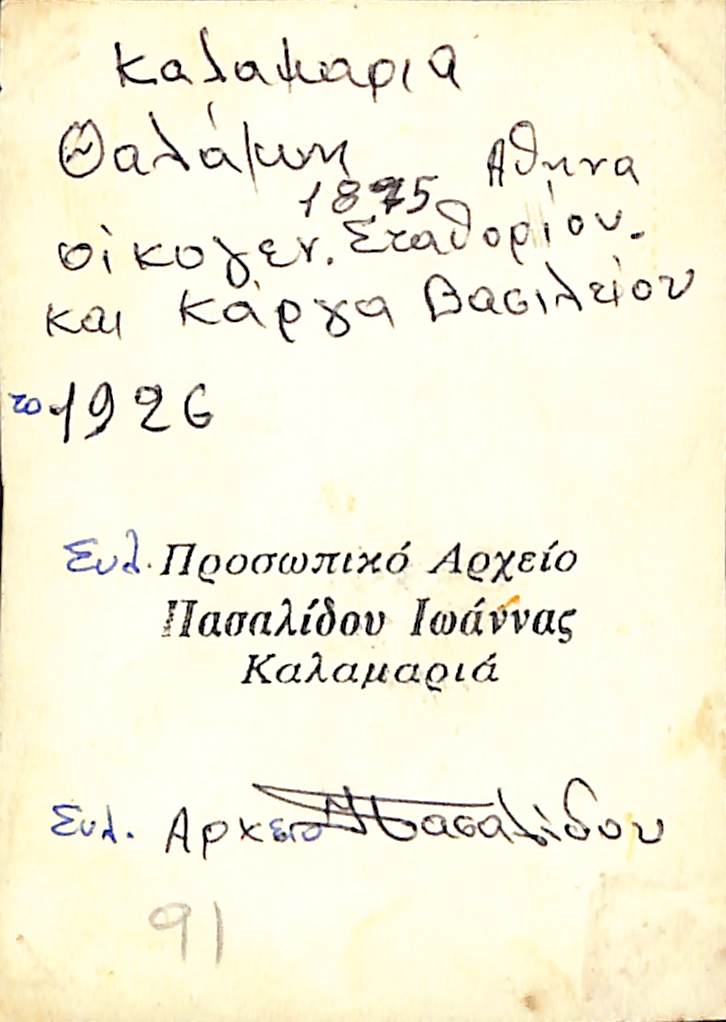 καλαμαρια
Θαλάμων Αθηνα
1875
οικογεν. Σταθορίου.
και Κάργα Βασιλείου
το 1926
Συλ. Προσωπικό Αρχείο
Πασαλίδου Ιωάννας
Καλαμαριά
Συλ. Αρχειο Πασαλίδου
91